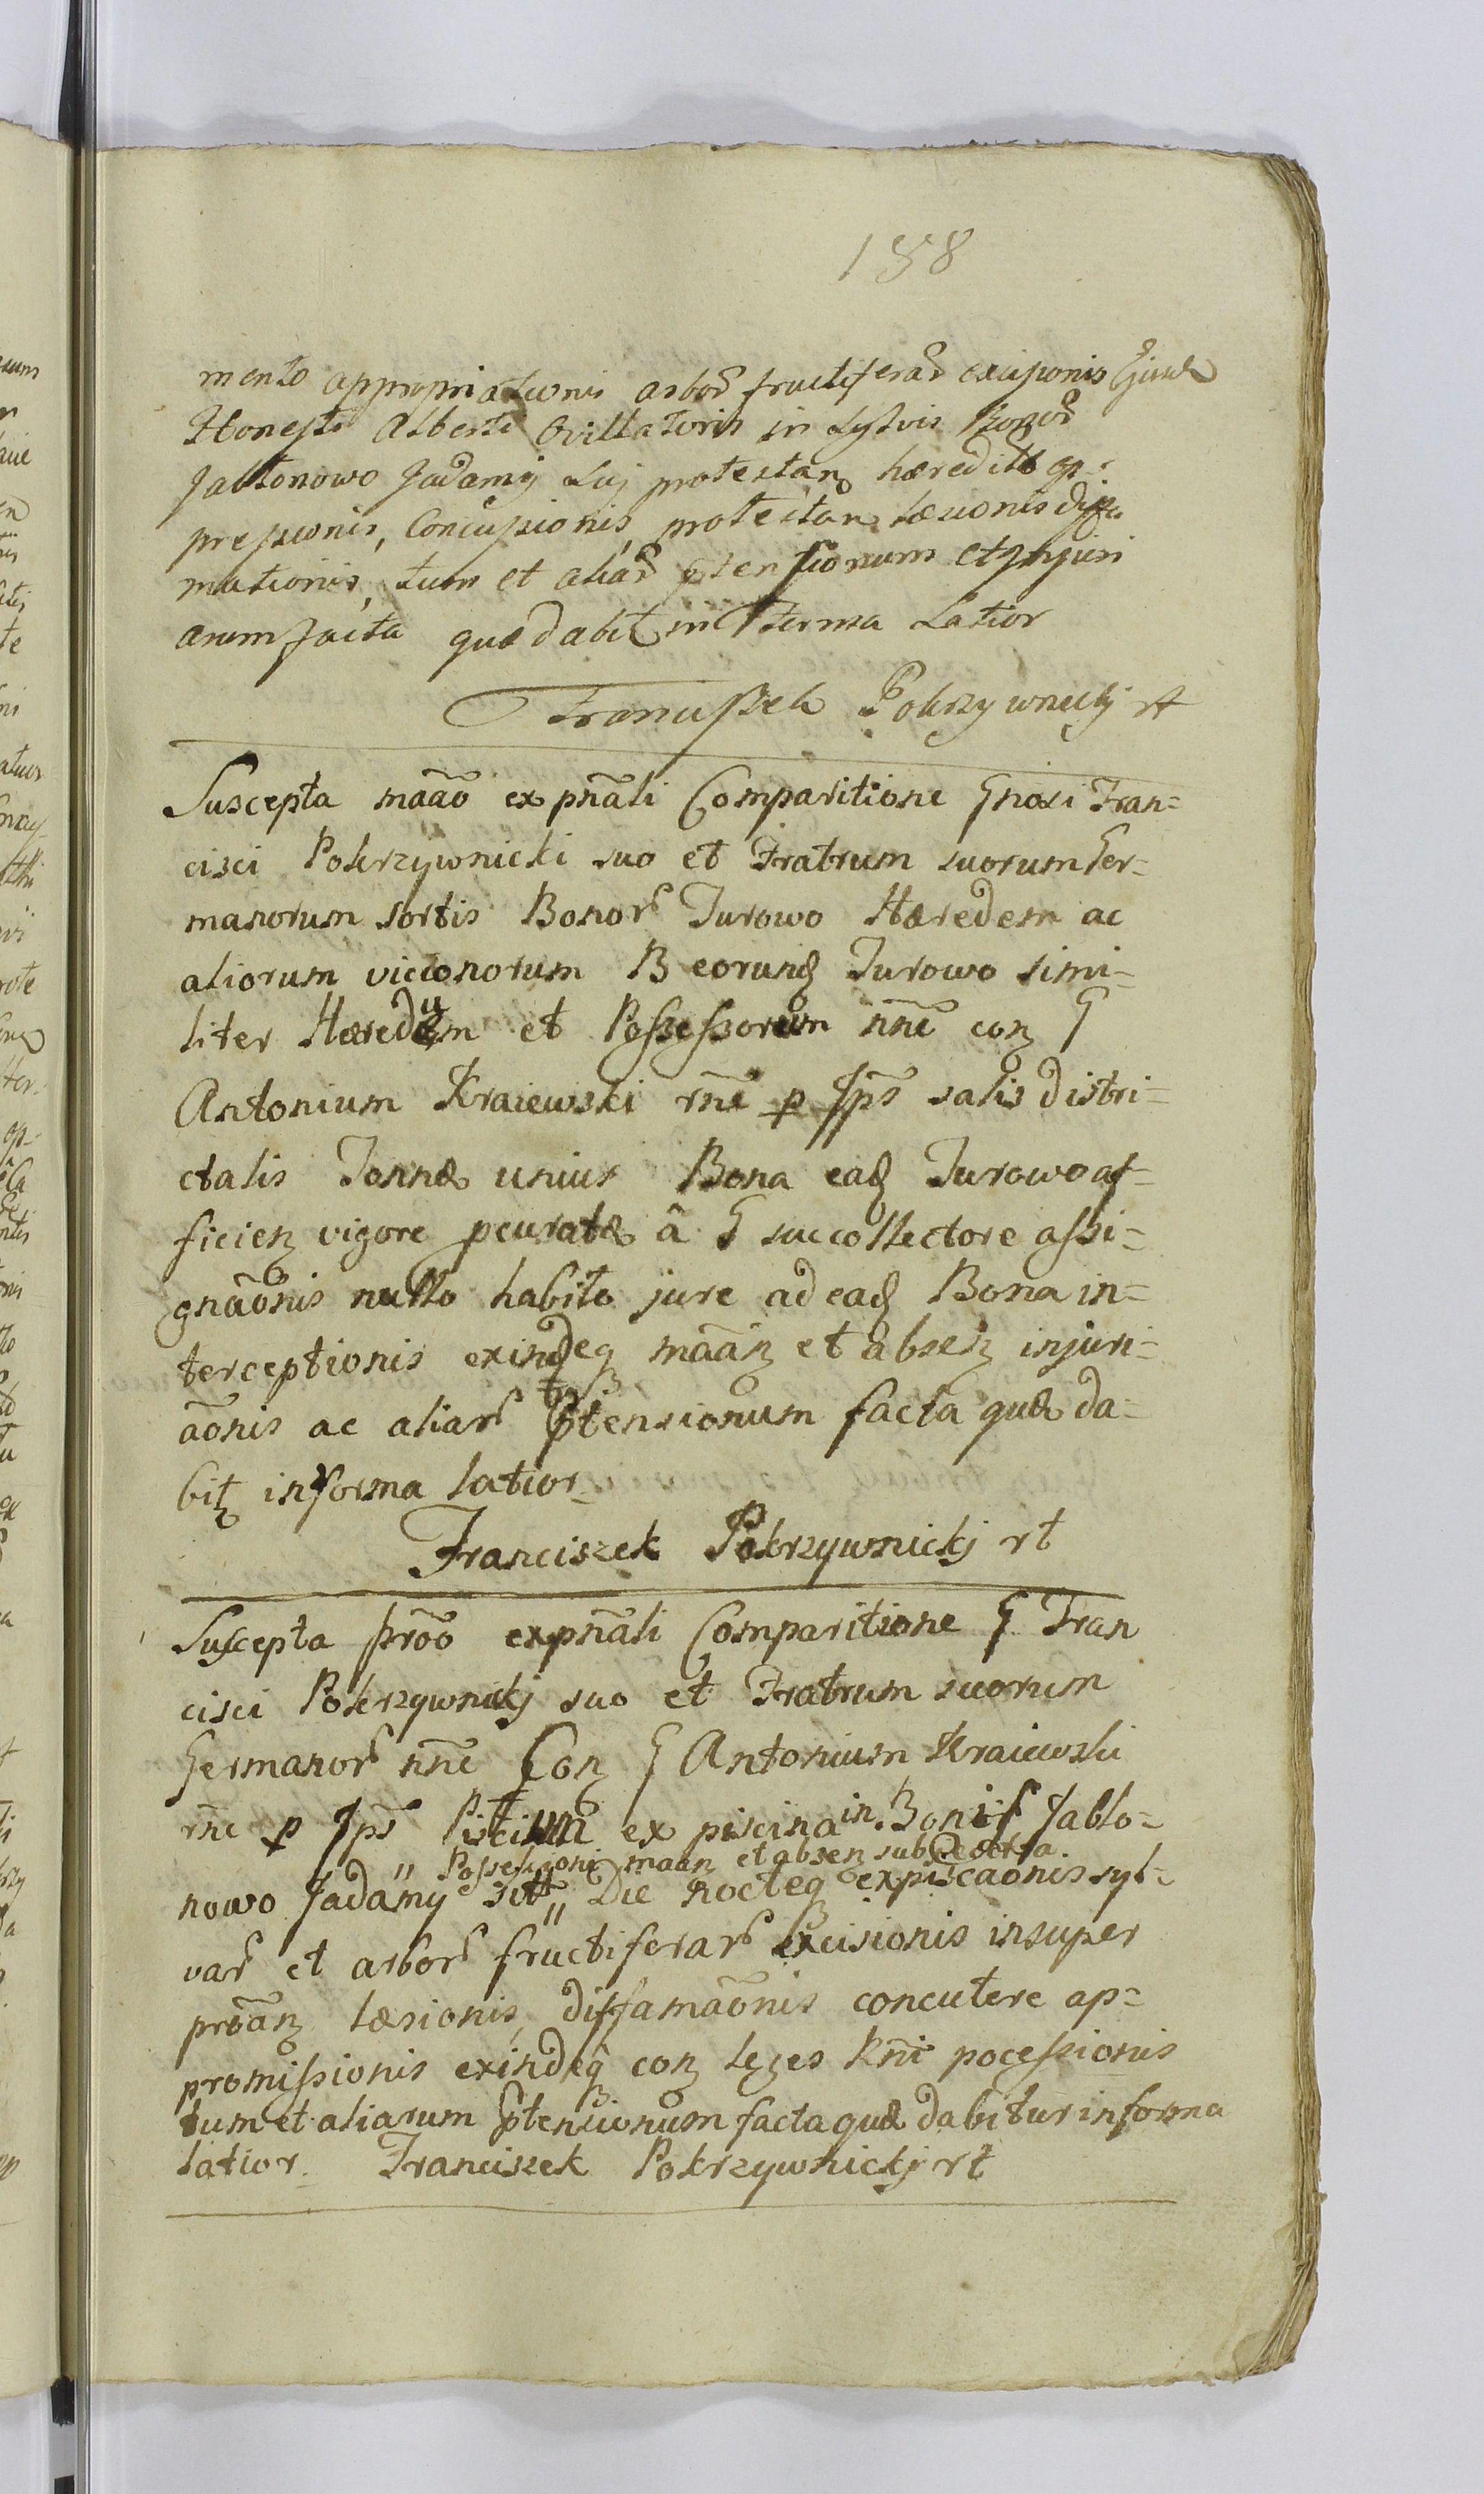 158
mento appropriationis arbor fructiferar excisionis
Honesti Alberti in Sylvis Bonor
Jabłonowo Jadamÿ sui protestan hæredit op-
pressionis, Concussionis, protestan læsionis diffa
mationis, tum et aliar ptensionum et Injuri
arum facta quæ dabit in Forma Latior
Franciszek Pokrzywnickj rt
Suscepta mãao ex pnãli Comparitione Gnosi Fran=
cisci Pokrzywnicki suo et Fratrum suorum Ger-
manorum sortis Bonor Turowo Hæredem ac
aliorum vicionorum B eorund Turowo simi-
liter Hæredum et Possessorum nñe con G
Antonium Kraiewski rñe p Jps salis distri-
ctalis Tonnæ unius Bona ead Turowo af-
ficien vigore pcuratæ â G succollectore assi-
gnãonis nullo habito jure ad ead Bona in=
terceptionis exindeq mãan et absen injuri-
ãonis ac aliar ptensionum facta quæ da-
bit in forma latior
Franciszek Pokrzywnickj rt
Suscepta prõo ex pnãli Comparitione G Fran
cisci Pokrzywnickj suo et Fratrum suorum
Germanor nñe Con G Antonium Kraiewski
rñe p Jps Piscium ex piscina in Bonis Jabło-
Possessioni maan et absen sub
nowo Jadamÿ sitt Die nocteq expiscãonis syl-
var et arbor fructiferar excisionis insuper
prõan læsionis, diffamãonis concutere ap=
promissionis exindeq con leges Rñi pocessionis
tum et aliarum ptensionum facta quæ dabitur in forma
latior. Franciszek Pokrzywnickj rt